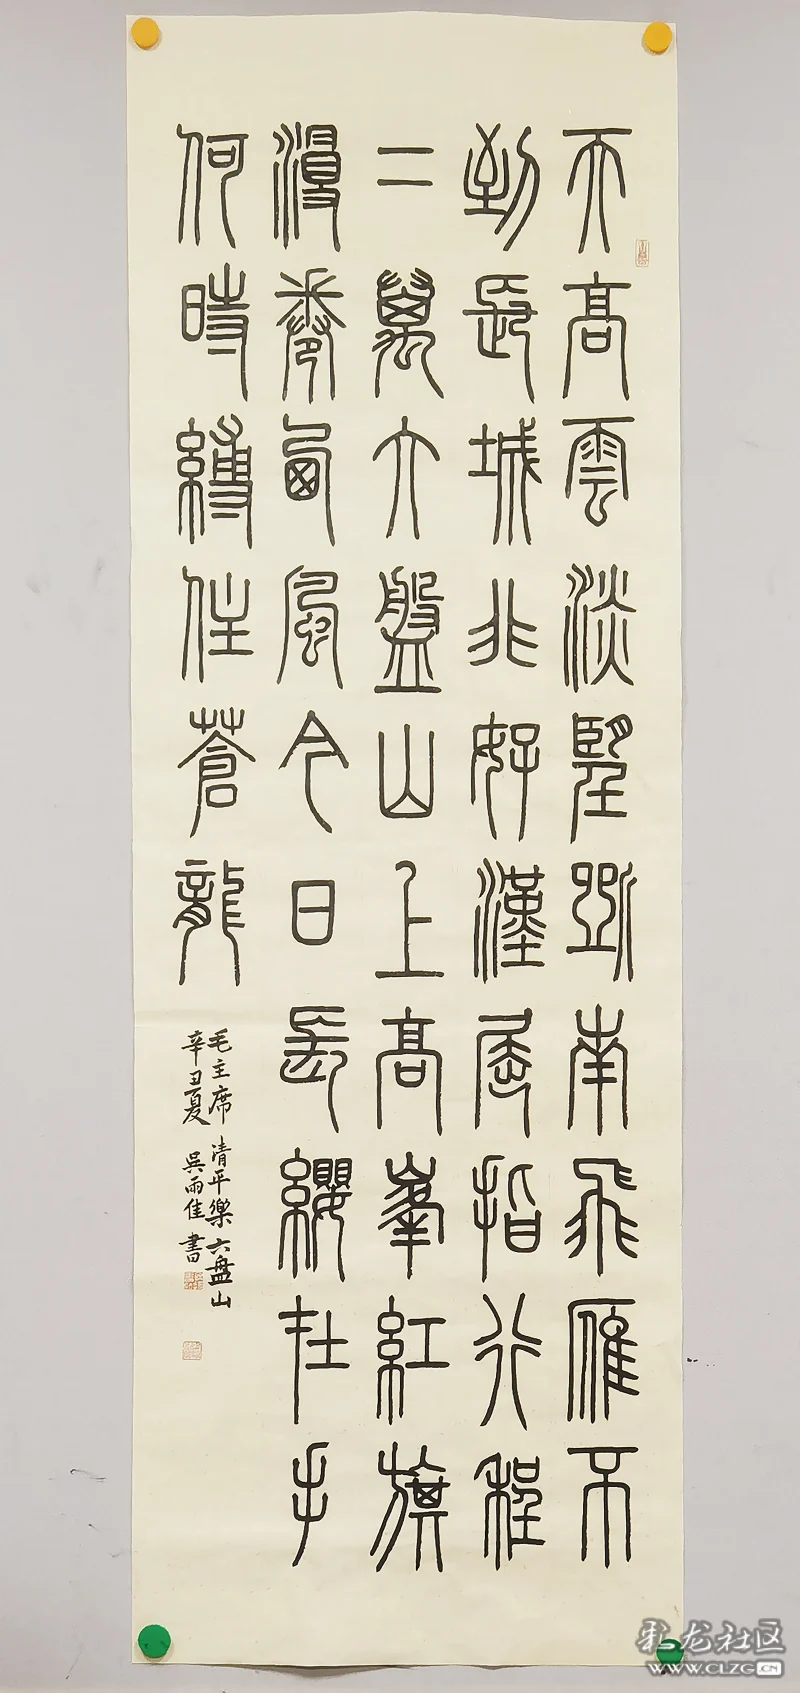 天高雲淡望斷南飛雁不
到長城非好漢屈指行程
二萬六盤山上高峯紅旗
漫卷西風今日長纓在手
何時縛住蒼龍
毛主席 清平樂 六盘山
辛丑夏 吳雨佳 書
彩龙社区
WWW.CLZG.CN